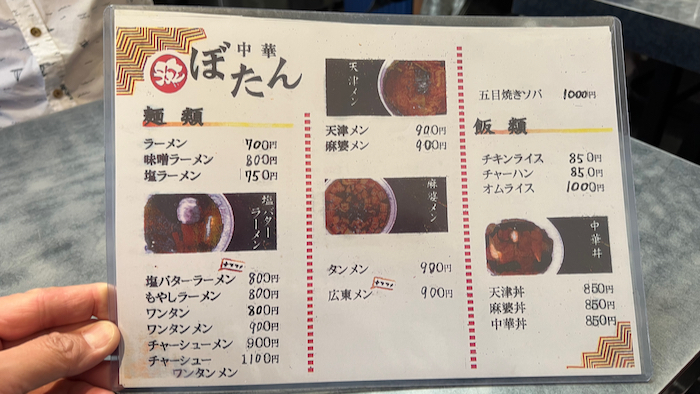 中華
ぼたん
麺類
ラーメン 700円
味噌ラーメン 800円
塩ラーメン 750円
塩バター
ラーメン
塩バターラーメン 800円
もやしラーメン 800円
ワンタン 800円
ワンタンメン 900円
チャーシューメン 900円
チャーシュー 1100円
ワンタンメン
天津メン
天津メン 900円
麻婆メン 900円
麻婆メン
タンメン 900円
広東メン 900円
五目焼きソバ 1000円
飯類
チキンライス 850円
チャーハン 850円
オムライス 1000円
中華丼
天津丼 850円
麻婆丼 850円
中華丼 850円